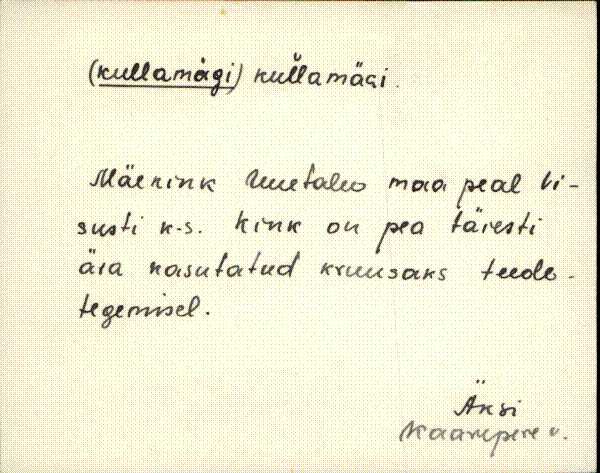 (kullamägi) kullamägi.
Mäekink Uuetalu maa peal Vi-
susti k-s. Kink on pea täiesti
ära kasutatud kruusaks teede-
tegemisel.
Äksi
Kaarepere v.